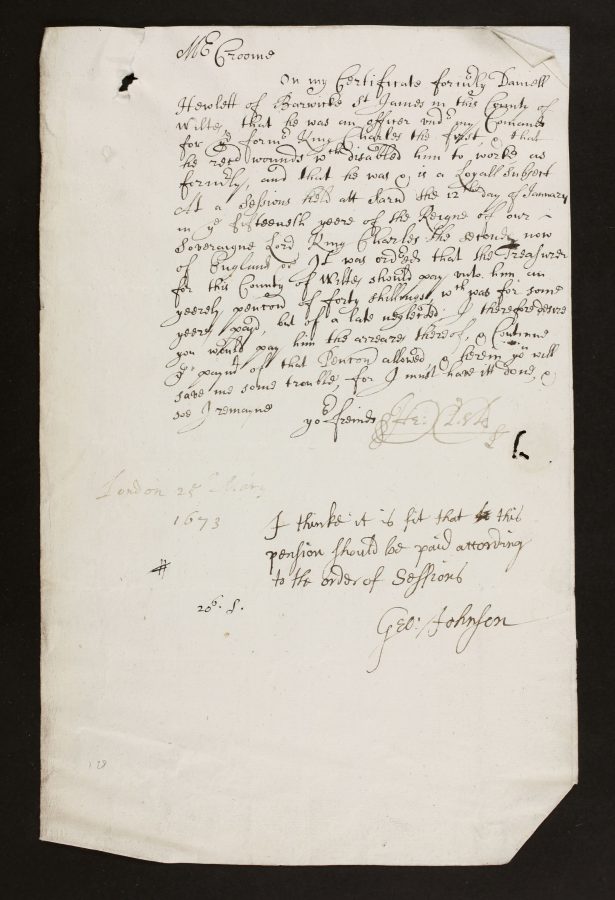 Mr Croome
On my Certificate formrly Daniell
Hewlett of Barwicke St James in this County of
Wiltes that he was an officer undr my Comand
for ye formr King Charles the first, & that
he recd wounds wch disabled him to worke as
formrly, and that he was & is a Loyall Subject
At a Sessions held att Sarū the 12th day of January
in ye fifteenth yeere of the Reigne of our
Soveraigne Lord King Charles the second, now
of England &c It was ordred that the Treasurer
for this County of Wiltes should pay unto him an
yeerely pencon of forty shillings, wch was for some
yeers paid, but of a late neglected, I therefore desire
you would pay him the arreares thereof, & Continue
ye paymt of that Pencon allowed & herein you will
save me some trouble, for I must have itt done, &
soe I remaine
yor freind
London 25 Mar
1673
I thinke it is fit that this
pension should be paid according
to the order of Sessions
20s.
Geo: Johnson